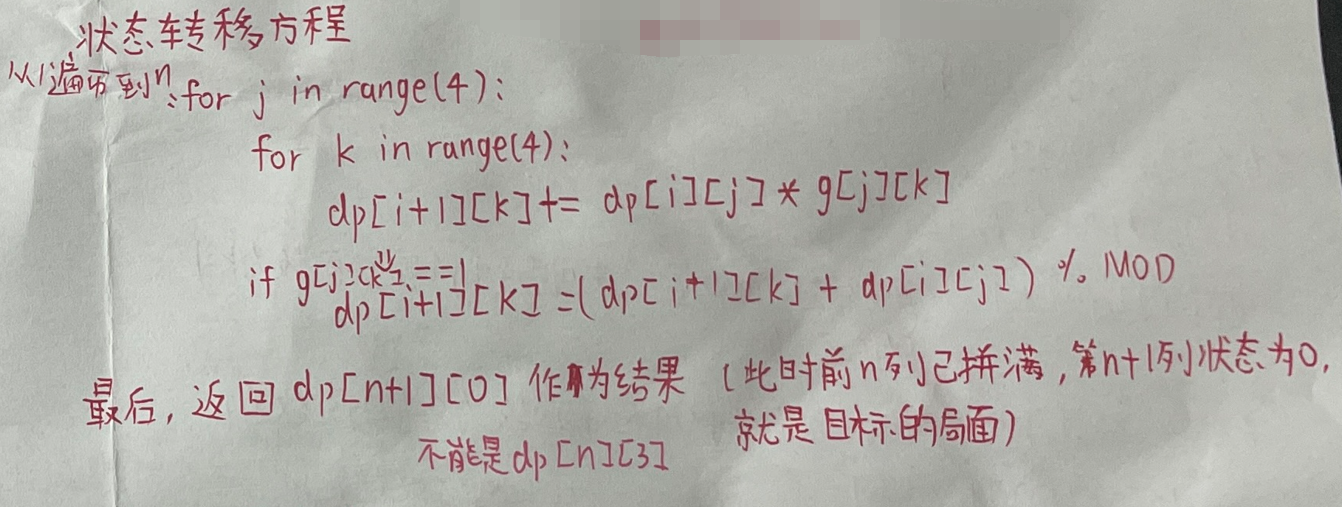 状态转移方程
从1遍历到n:for j in range(4):
for k in range(4):
dp[i+1][k]+= dp[i][j] * g[j][k]
⇓
if g[j][k]==1
dp[i+1][k] =(dp[i+1][k] + dp[i][j]) % MOD
最后, 返回 dp[n+1][0] 作为结果 (此时前n列已拼满, 第n+1列状态为0,
就是目标的局面)
不能是dp[n][3]